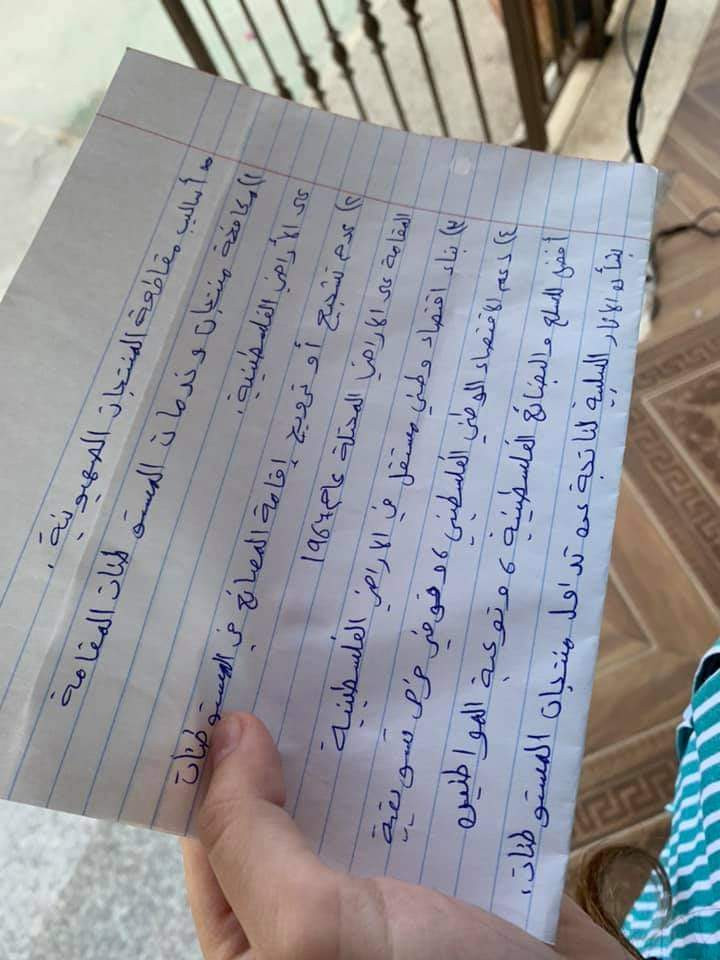 * أساليب مقاطعة المنتجات الصهيونية.
١) مكافحة منتجات وخدمات المستوطنات المقامة
على الأراضي الفلسطينية.
٢) عدم تشجيع أو ترويج إقامة المصانع في المستوطنات
المقامة على الاراضي المحتلة عام 1967
٣) بناء اقتصاد وطني مستقل في الاراضي الفلسطينية
٤) دعم الاقتصاد الوطني الفلسطيني، فرص تسويقية
أفضل للسلع والبضائع الفلسطينية، وتوعية المواطنين
بشأن الآثار السلبية الناتجة عن تداول منتجات المستوطنات.